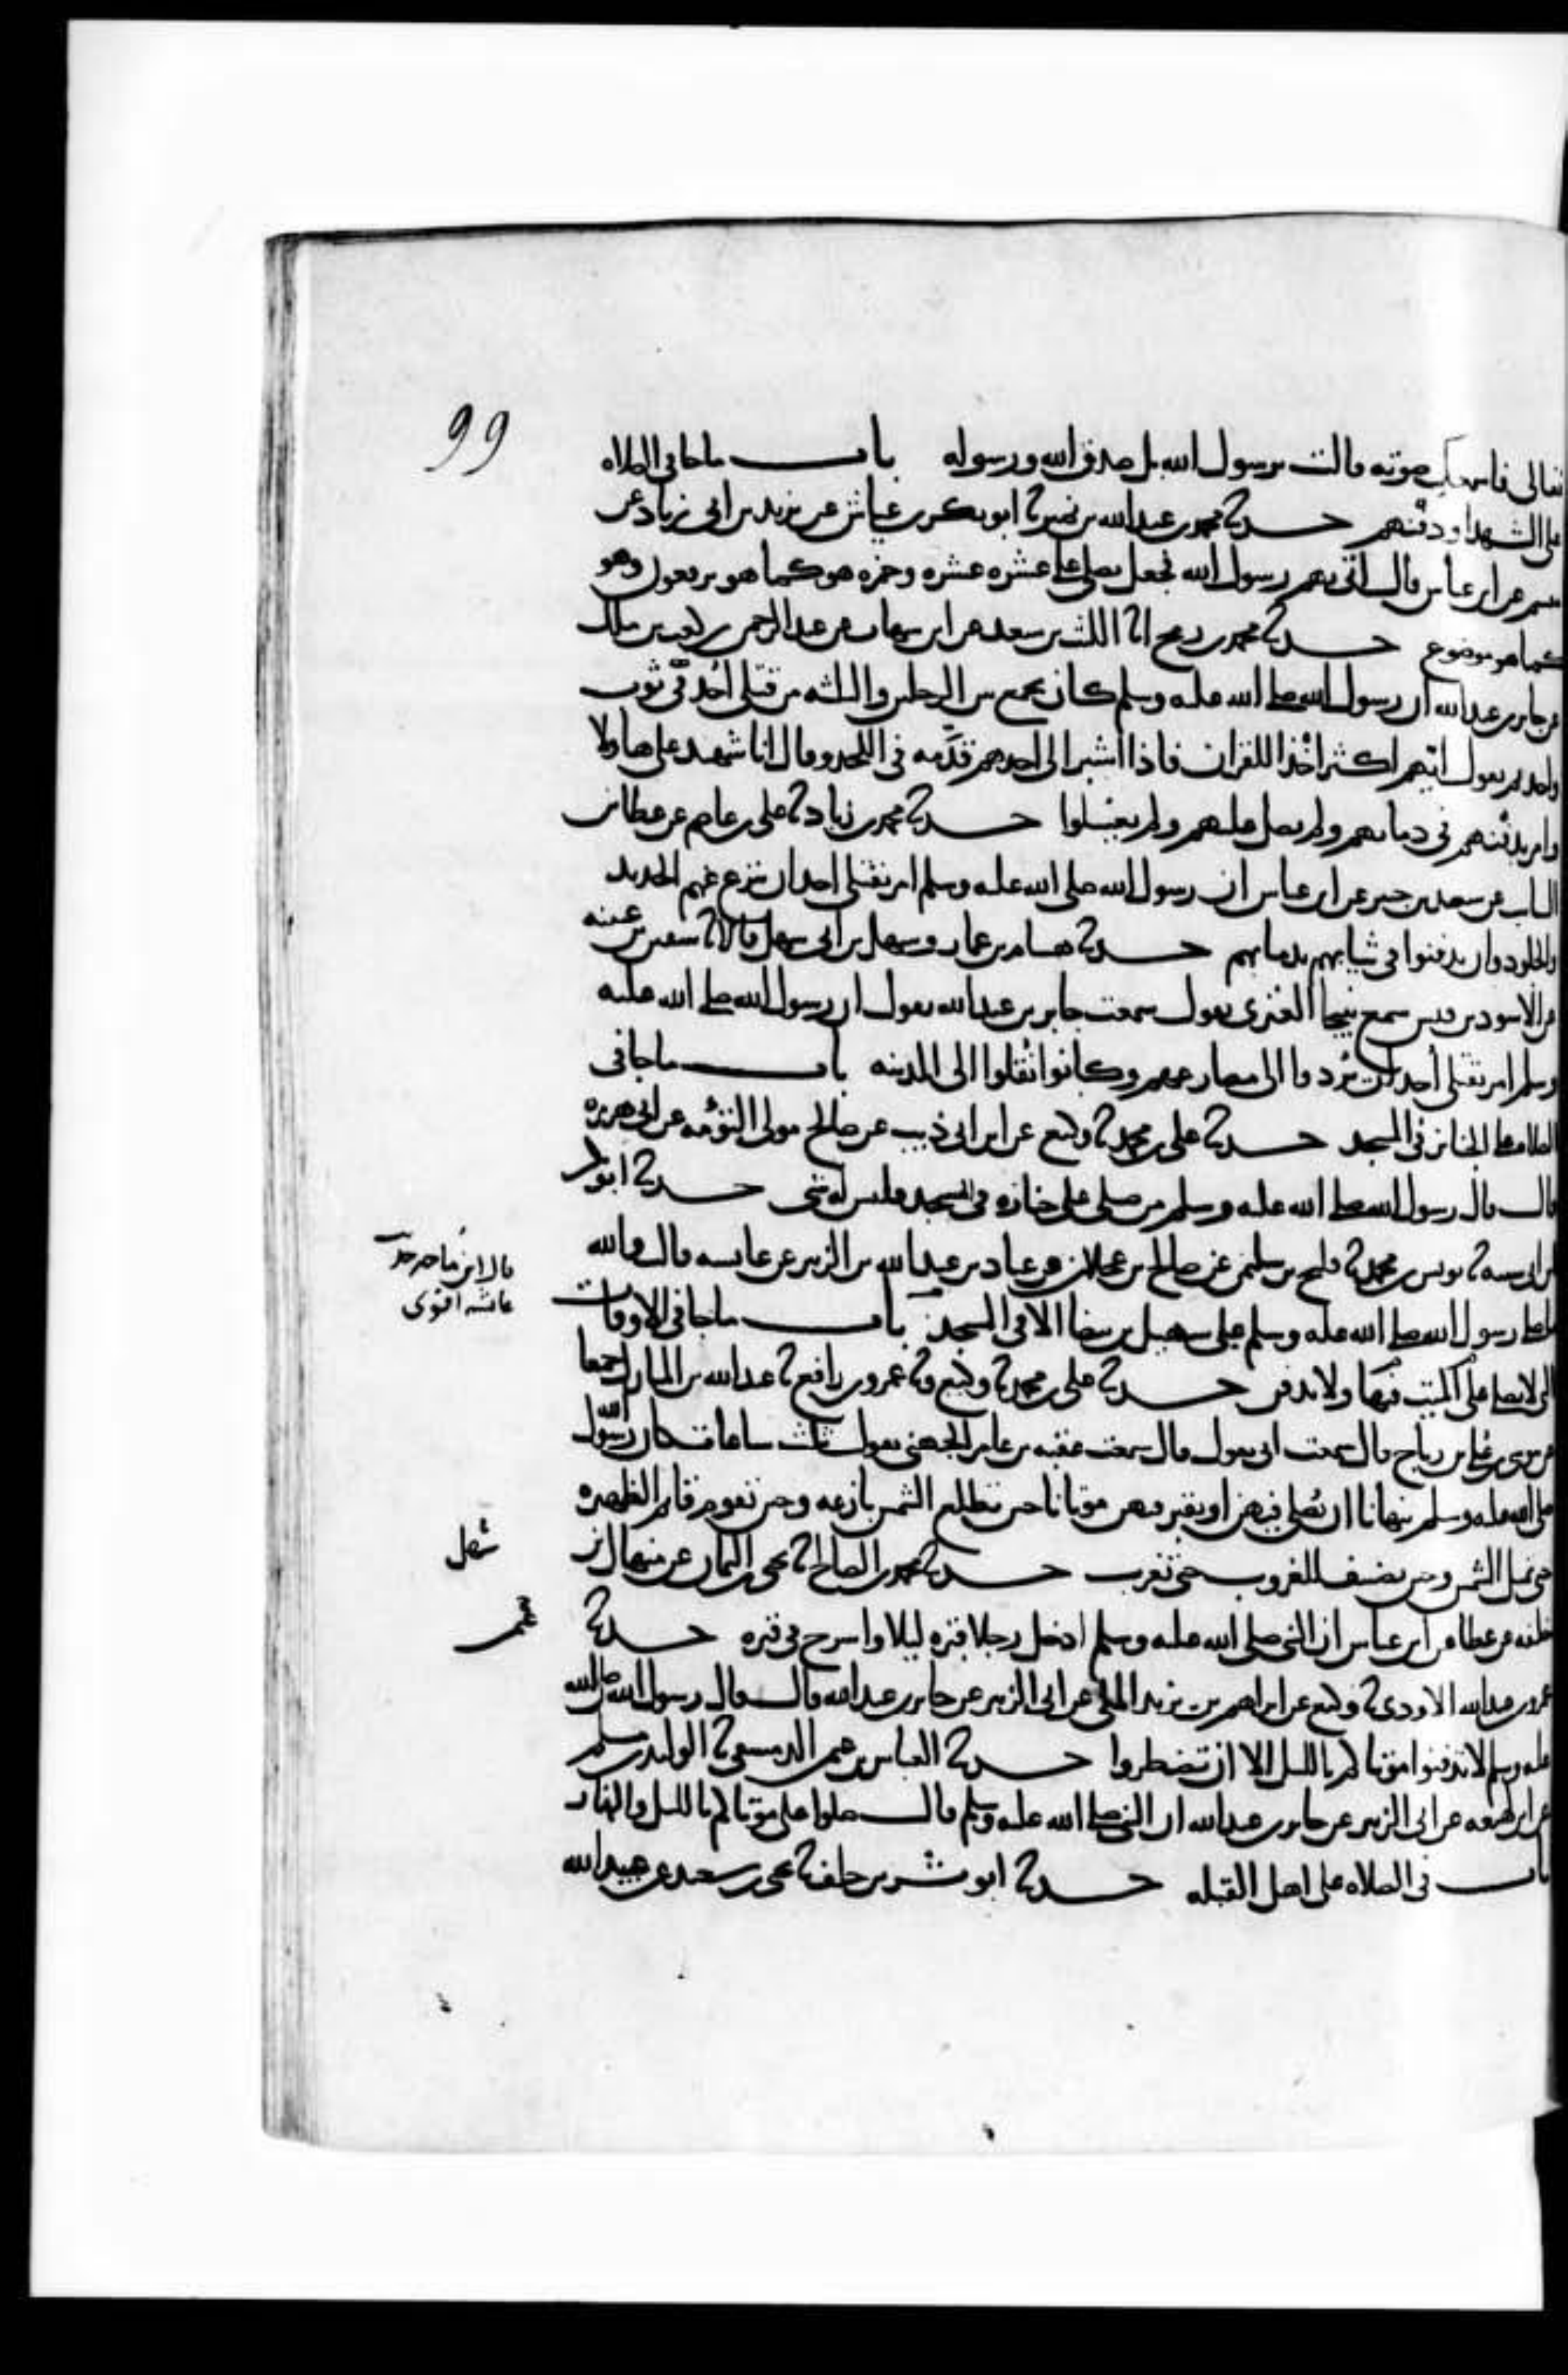 99
تعالى فاسمعك صوته قالت يرسول الله بل صدق الله ورسوله باب ما جا في الصلاه
على الشهدا ودفنهم حدثنا محمد بن عبد الله بن نمير ثنا ابو بكر بن عياش عن يزيد بن ابي زياد عن
مقسم عن ابن عباس قال اتي بهم رسول الله فجعل يصلي على عشره عشره وحمزه هو كما هو يرفعون وهو
كما هو موضوع حدثنا محمد بن رمح انا الليث بن سعد عن ابن شهاب عن عبد الرحمن بن كعب بن ملك
عن جابر بن عبد الله ان رسول الله صلى الله عليه وسلم كان يجمع بين الرجلين والثلثه من قتلى احد في ثوب
واحد ثم يقول ايهم اكثر اخذا للقران فاذا اشير الى احدهم قدمه في اللحد وقال انا شهيد على هاولا
وامر بدفنهم في دمايهم ولم يصل عليهم ولم يغسلوا حدثنا محمد بن زياد ثنا علي بن عاصم عن عطا بن
السايب عن سعيد بن جبير عن ابن عباس ان رسول الله صلى الله عليه وسلم امر بقتلى احد ان ينزع عنهم الحديد
والجلود وان يدفنوا في ثيابهم بدمايهم حدثنا هشام بن عمار وسهل بن ابي سهل قالا ثنا سفين بن عيينه
عن الاسود بن قيس سمع نبيحا العنزي يقول سمعت جابر بن عبد الله يقول ان رسول الله صلى الله عليه
وسلم امر بقتلى احد ان يردوا الى مصارعهم وكانوا نقلوا الى المدينه باب ما جا في
الصلاه على الجنايز في المسجد حدثنا علي بن محمد ثنا وكيع عن ابن ابي ذيب عن صالح مولى التوءمه عن ابي هريره
قال قال رسول الله صلى الله عليه وسلم من صلى على جنازه في المسجد فليس له شي حدثنا ابو بكر
بن ابي شيبه ثنا يونس بن محمد ثنا فليح بن سليمن عن صالح بن عجلان عن عباد بن عبد الله بن الزبير عن عايشه قالت والله
ما صلى رسول الله صلى الله عليه وسلم على سهيل بن بيضا الا في المسجد باب ما جا في الاوقات
قال ابن ماجه حديث
عائشه اقوى
التي لا يصلى على الميت فيها ولا يدفن حدثنا علي بن محمد ثنا وكيع وثنا عمرو بن رافع ثنا عبد الله بن المبارك جميعا
عن موسى بن علي بن رباح قال سمعت ابي يقول قال سمعت عقبه بن عامر الجهني يقول ثلث ساعات كان رسول الله
صلى الله عليه وسلم ينهانا ان نصلي فيهن او نقبر فيهن موتانا حين تطلع الشمس بازغه وحين تقوم قايم الظهيره
حتى تميل الشمس وحين تضيف للغروب حتى تغرب حدثنا محمد بن الصباح انا يحيى بن اليمان عن منهال بن
خليفه عن عطا عن ابن عباس ان النبي صلى الله عليه وسلم ادخل رجلا قبره ليلا واسرج في قبره حدثنا
عمرو بن عبد الله الاودي ثنا وكيع عن ابراهيم بن يزيد المكي عن ابي الزبير عن جابر بن عبد الله قال قال رسول الله صلى الله
عليه وسلم لا تدفنوا موتاكم بالليل الا ان تضطروا حدثنا العباس بن عثمن الدمشقي ثنا الوليد بن مسلم
عن ابن لهيعه عن ابي الزبير عن جابر بن عبد الله ان النبي صلى الله عليه وسلم قال صلوا على موتاكم بالليل والنهار
باب في الصلاه على اهل القبله حدثنا ابو بشر بن خلف ثنا يحيى بن سعيد عن عبيد الله